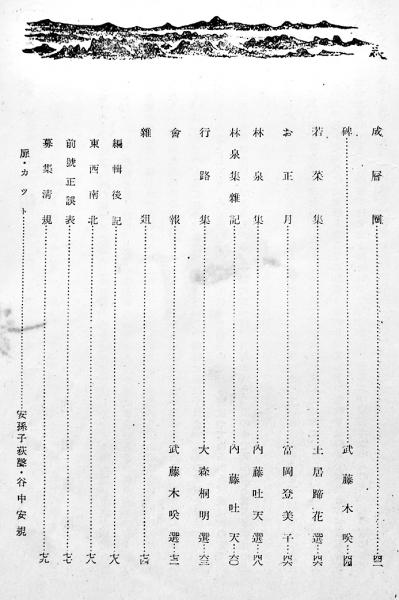 成層圏……四二
碑……武藤木咲……四四
若菜集……土居蹄花選……四六
お正月……富岡登美子……四六
林泉集……內藤吐天選……四八
林泉集雜記……內藤吐天……六〇
行路集……大森桐明選……六三
會報……武藤木咲選……七二
雜爼……七四
編輯後記……八八
東西南北……七八
前號正誤表……七七
募集清規……七九
扉・カット……安孫子荻聲・谷中安規